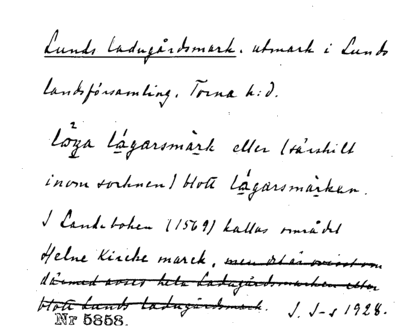 Lunds ladugårdsmark. utmark i Lunds
landsförsamling, Torna h:d.
lággarsmàrk eller (särskilt
inom socknen) blott lágarsmàrken.
I Lundeboken (1569) kallas området
Helne Kircke marck, men det är ovisst om
därmed avses hela Ladugårdsmarken eller
blott Lunds ladugårdsmark. J. S-s 1928.
Nr 5858.